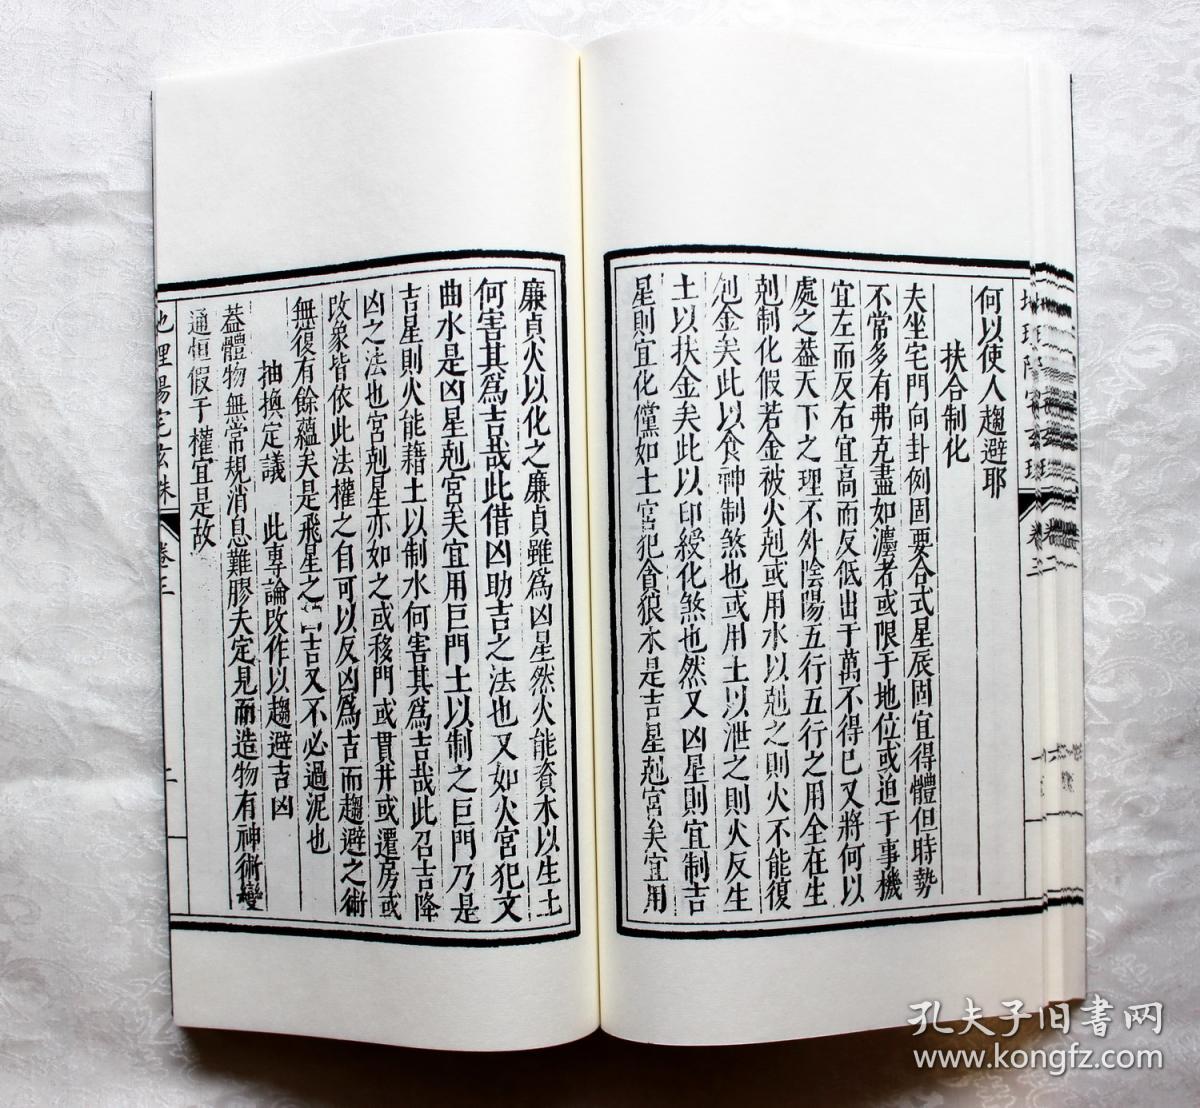 何以使人趨避耶
扶合制化
夫坐宅門向卦例固要合式星辰固宜得體但時勢
不常多有弗克盡如灋者或限于地位或迫于事機
宜左而反右宜高而反低出于萬不得已又將何以
處之葢天下之理不外陰陽五行五行之用全在生
剋制化假若金被火剋或用水以剋之則火不能復
剋金矣此以食神制煞也或用土以泄之則火反生
土以扶金矣此以印綬化煞也然又凶星則宜制吉
星則宜化儻如土宮犯貪狼木是吉星剋宮矣宜用
廉貞火以化之廉貞雖爲凶星然火能資木以生土
何害其爲吉哉此借凶助吉之法也又如火宮犯文
曲水是凶星剋宮矣宜用巨門土以制之巨門乃是
吉星則火能藉土以制水何害其爲吉哉此召吉降
凶之法也宮剋星亦如之或移門或貫井或遷房或
改象皆依此法權之自可以反凶爲吉而趨避之術
無復有餘蘊矣是飛星之吉又不必過泥也
抽換定議 此專論改作以趨避吉凶
葢體物無常規消息難膠夫定見而造物有神術變
通恒假于權宜是故
地理陽宅玄珠 卷三
孔夫子旧書网
www.kongfz.com